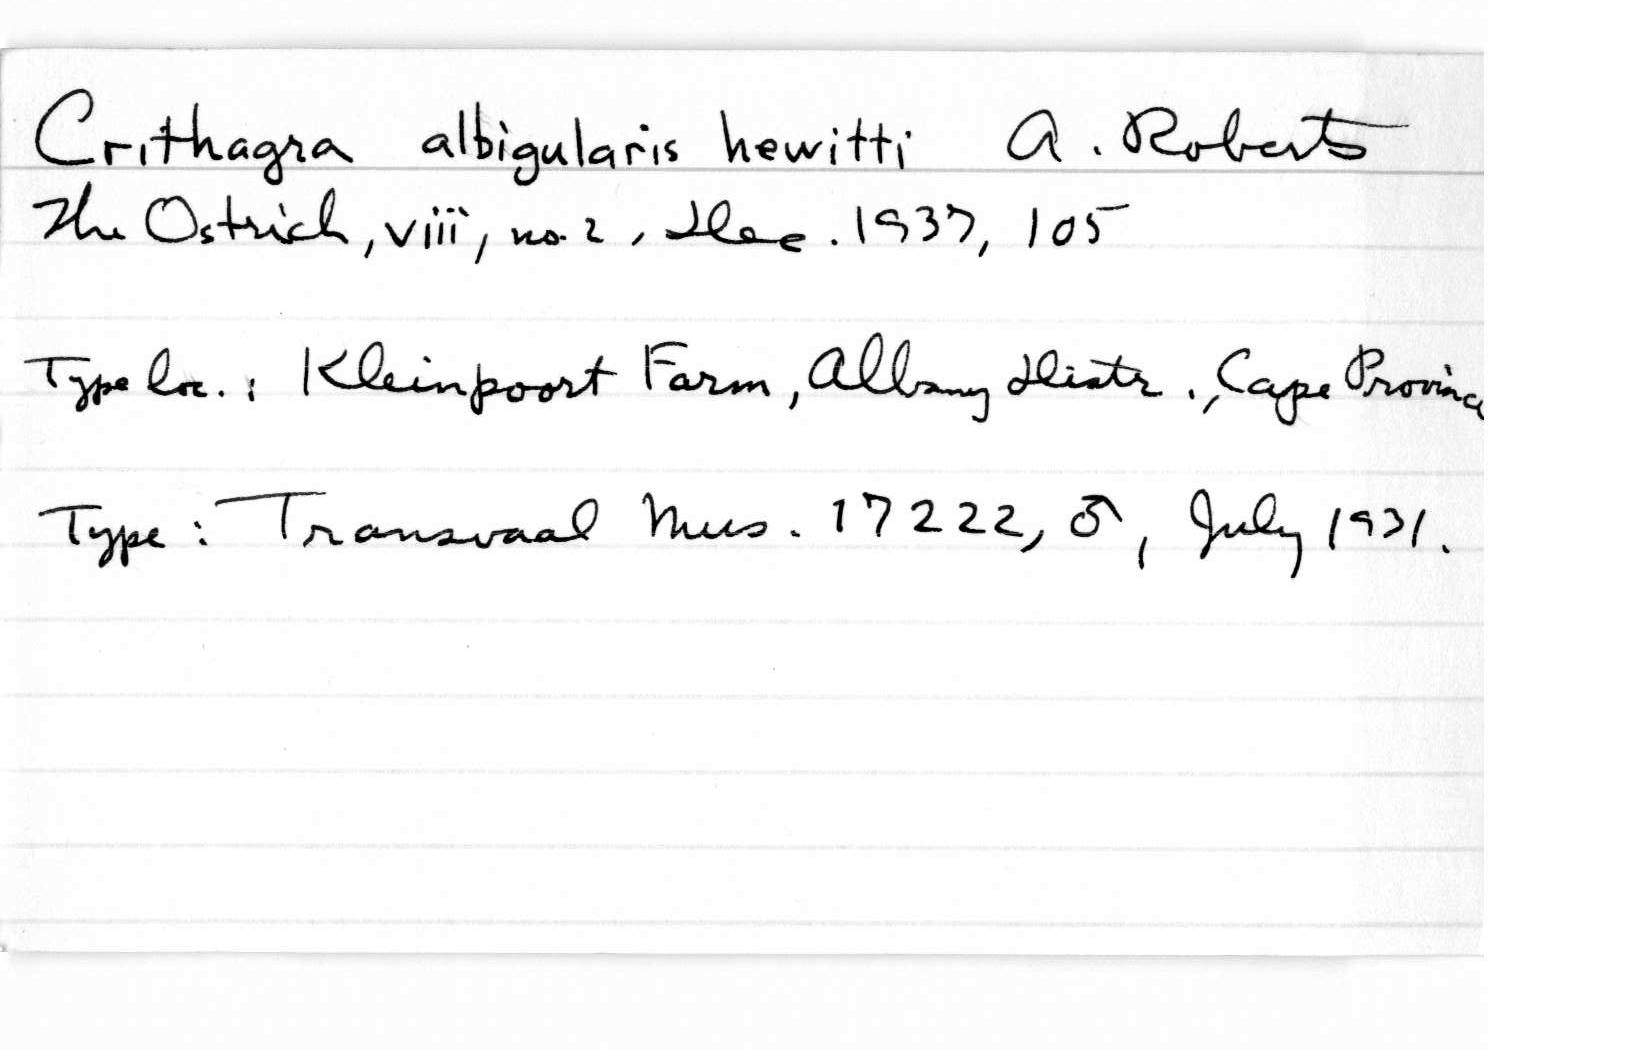 Crithagra albigularis hewitti A. Roberts
The Ostrich, viii, no. 2, Dec. 1937, 105
Type loc.: Kleinpoort Farm, Albany Distr., Cape Province
Type: Transvaal Mus. 17222, ♂, July 1931.